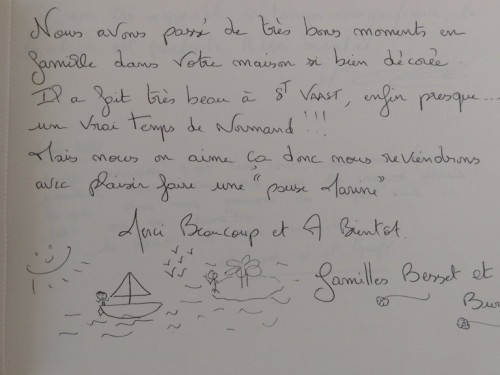 Nous avons passé de très bons moments en
famille dans votre maison si bien décorée.
Il a fait très beau à ST VAAST, enfin presque...
un vrai temps de Normand !!!
Mais nous on aime ça donc nous reviendrons
avec plaisir faire une "pause Marine".
Merci Beaucoup et A Bientôt.
familles Besset et